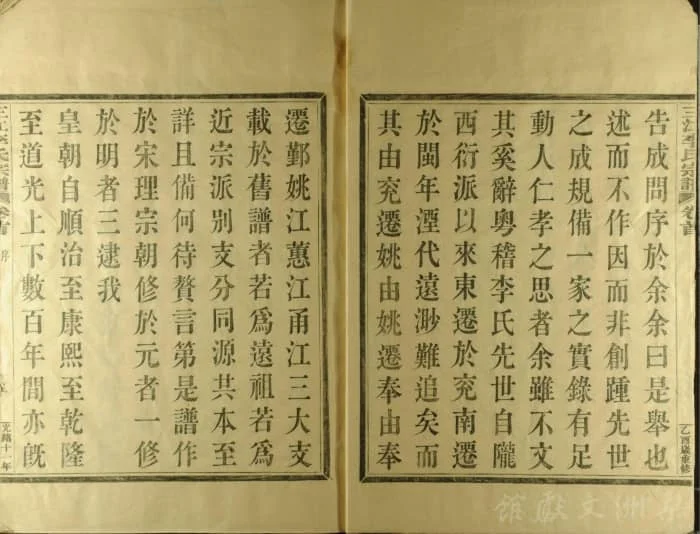 三江李氏宗譜 卷首
乙酉歲重修
告成問序於余余曰是舉也
述而不作因而非創踵先世
之成規備一家之實錄有足
動人仁孝之思者余雖不文
其奚辭粵稽李氏先世自隴
西衍派以來東遷於兗南遷
於閩年湮代遠渺難追矣而
其由兗遷姚由姚遷奉由奉
遷鄞姚江蕙江甬江三大支
載於舊譜者若爲遠祖若爲
近宗派別支分同源共本至
詳且備何待贅言第是譜作
於宋理宗朝修於元者一修
於明者三逮我
皇朝自順治至康熙至乾隆
至道光上下數百年間亦旣
三江李氏宗譜 卷首 序
光緒十一年
洲文獻館